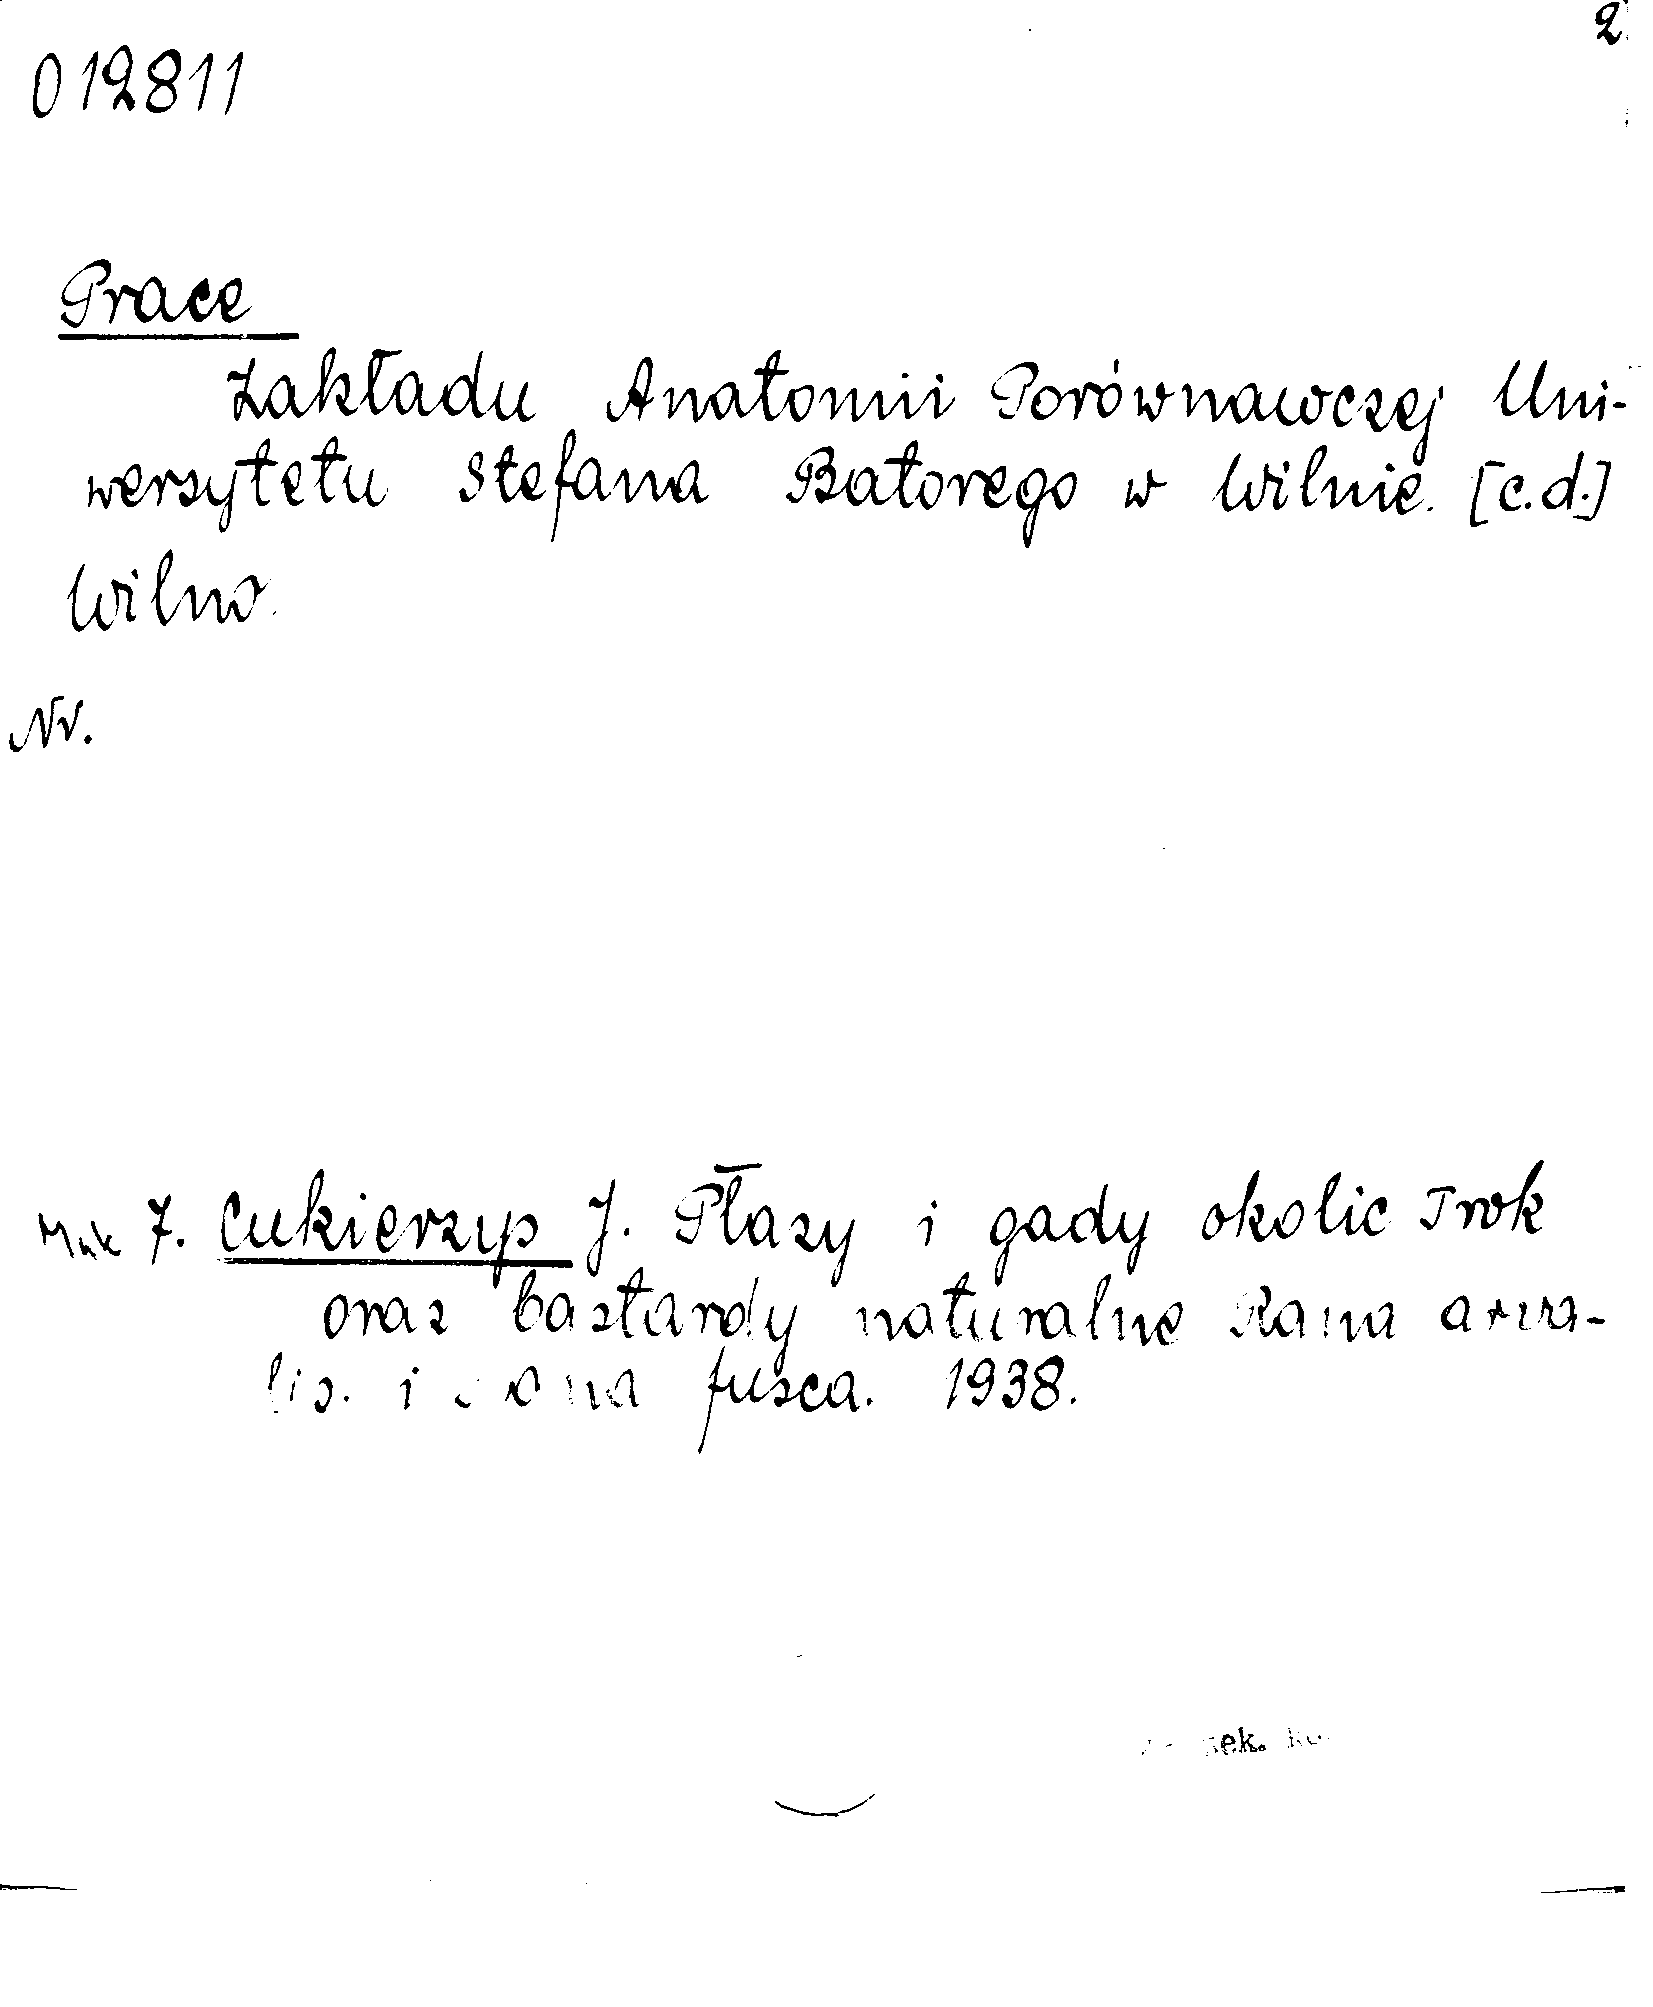 2
012811
Prace
Zakładu Anatomii Porównawczej Uni-
wersytetu Stefana Batorego w Wilnie. [c.d.]
Wilno.
Nr.
7. Cukierzyp J. Płazy i gady okolic Trok
oraz bastardy naturalne Rana arva-
lis. i Rana fusca. 1938.
sek.